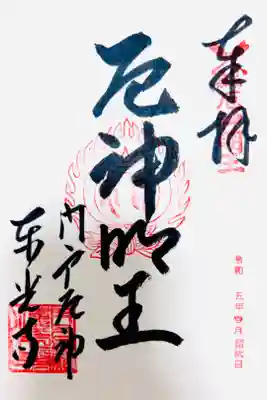 奉拝
厄神明王
門戸厄神
東光寺
令和 五年 四月 招福日